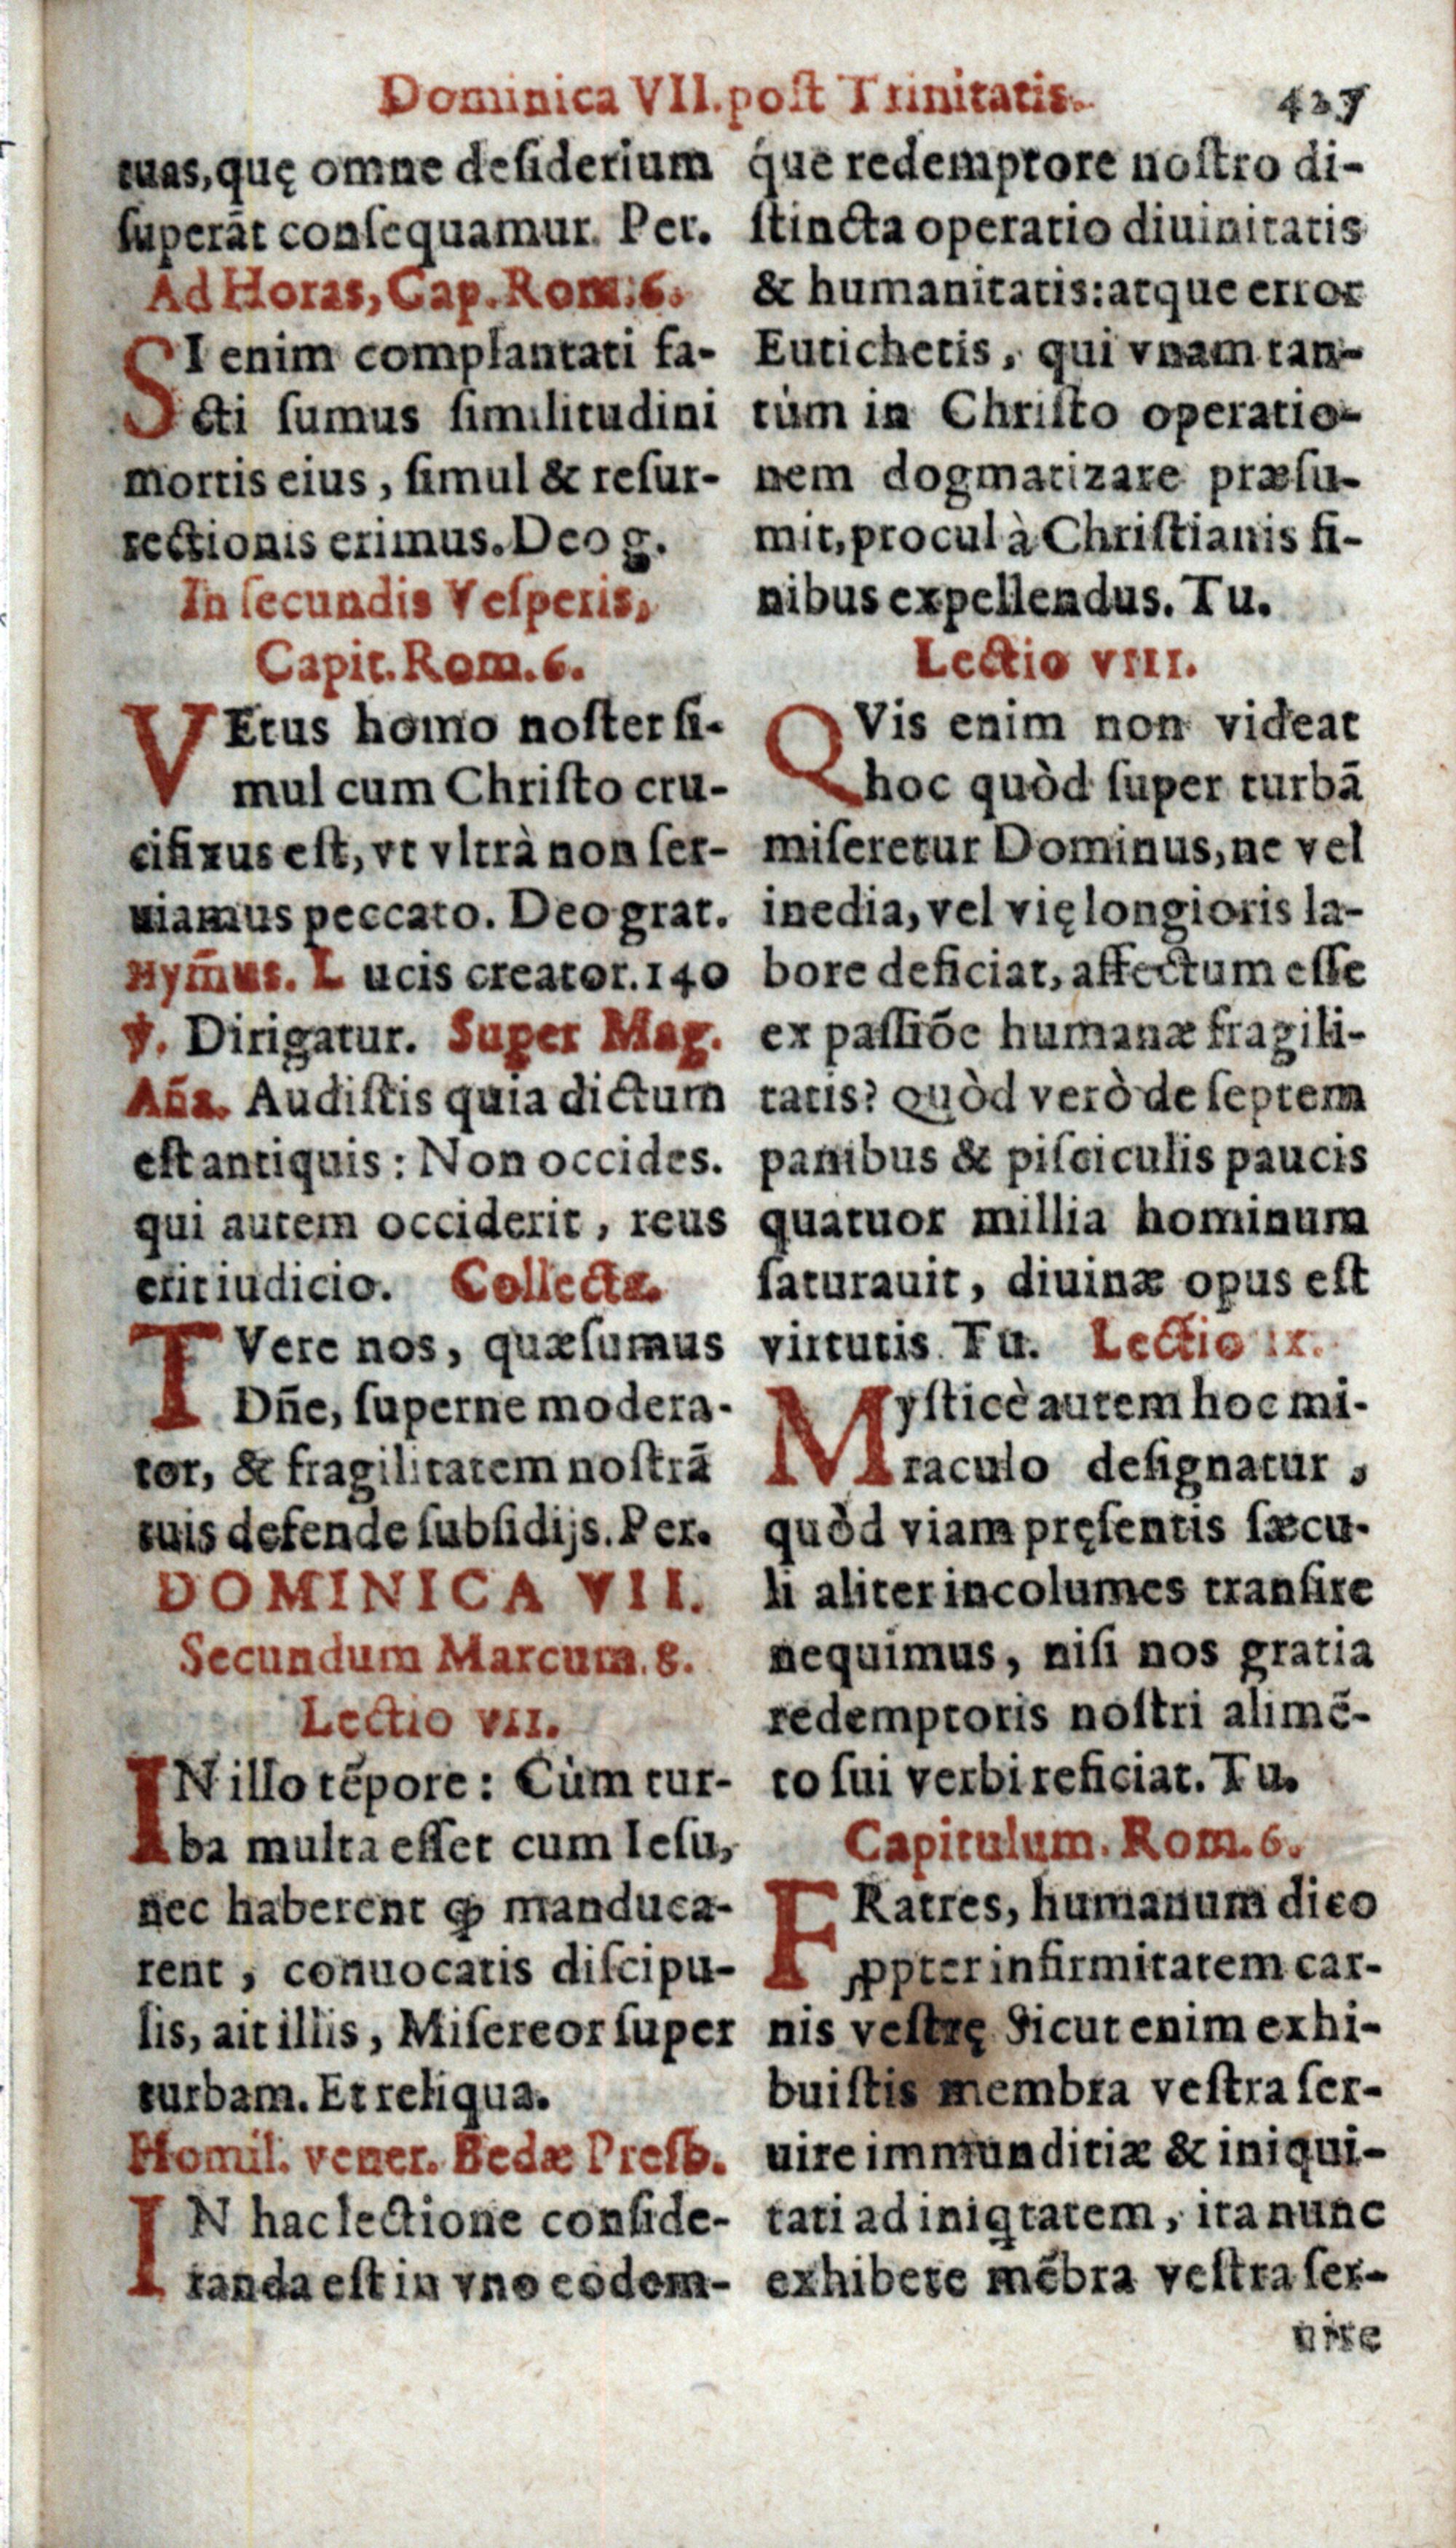 Dominica VII. post Trinitatis. 427
tuas, quę omne desiderium
superāt consequamur. Per.
Ad Horas, Cap. Rom. 6.
SI enim complantati fa-
cti sumus similitudini
mortis eius, simul & resur-
rectionis erimus. Deo g.
In secundis Vesperis,
Capit. Rom. 6.
VEtus homo noster si-
mul cum Christo cru-
cifixus est, vt vltrà non ser-
uiamus peccato. Deo grat.
Hym̄us. Lucis creator. 140
℣. Dirigatur. Super Mag.
Añа. Audistis quia dictum
est antiquis: Non occides.
qui autem occiderit, reus
erit iudicio. Collecta.
TVere nos, quæsumus
Dñe, superne modera-
tor, & fragilitatem nostrā
tuis defende subsidijs. Per.
DOMINICA VII.
Secundum Marcum. 8.
Lectio VII.
IN illo tēpore: Cùm tur-
ba multa esset cum Iesu,
nec haberent ꝙ manduca-
rent, conuocatis discipu-
lis, ait illis, Misereor super
turbam. Et reliqua.
Homil. vener. Bedæ Presb.
IN hac lectione conside-
randa est in vno eodem-
q́ue redemptore nostro di-
stincta operatio diuinitatis
& humanitatis: atque error
Eutichetis, qui vnam tan-
tùm in Christo operatio-
nem dogmatizare præsu-
mit, procul à Christianis fi-
nibus expellendus. Tu.
Lectio VIII.
QVis enim non videat
hoc quòd super turbā
miseretur Dominus, ne vel
inedia, vel vię longioris la-
bore deficiat, affectum esse
ex passiōe humanæ fragili-
tatis? Quòd verò de septem
panibus & pisciculis paucis
quatuor millia hominum
saturauit, diuinæ opus est
virtutis. Tu. Lectio IX.
Mysticè autem hoc mi-
raculo designatur,
quòd viam pręsentis sæcu-
li aliter incolumes transire
nequimus, nisi nos gratia
redemptoris nostri alimē-
to sui verbi reficiat. Tu.
Capitulum. Rom. 6.
FRatres, humanum dico
ꝓpter infirmitatem car-
nis vestrę. Sicut enim exhi-
buistis membra vestra ser-
uire immunditiæ & iniqui-
tati ad iniq̇tatem, ita nunc
exhibete mēbra vestra ser-
uire